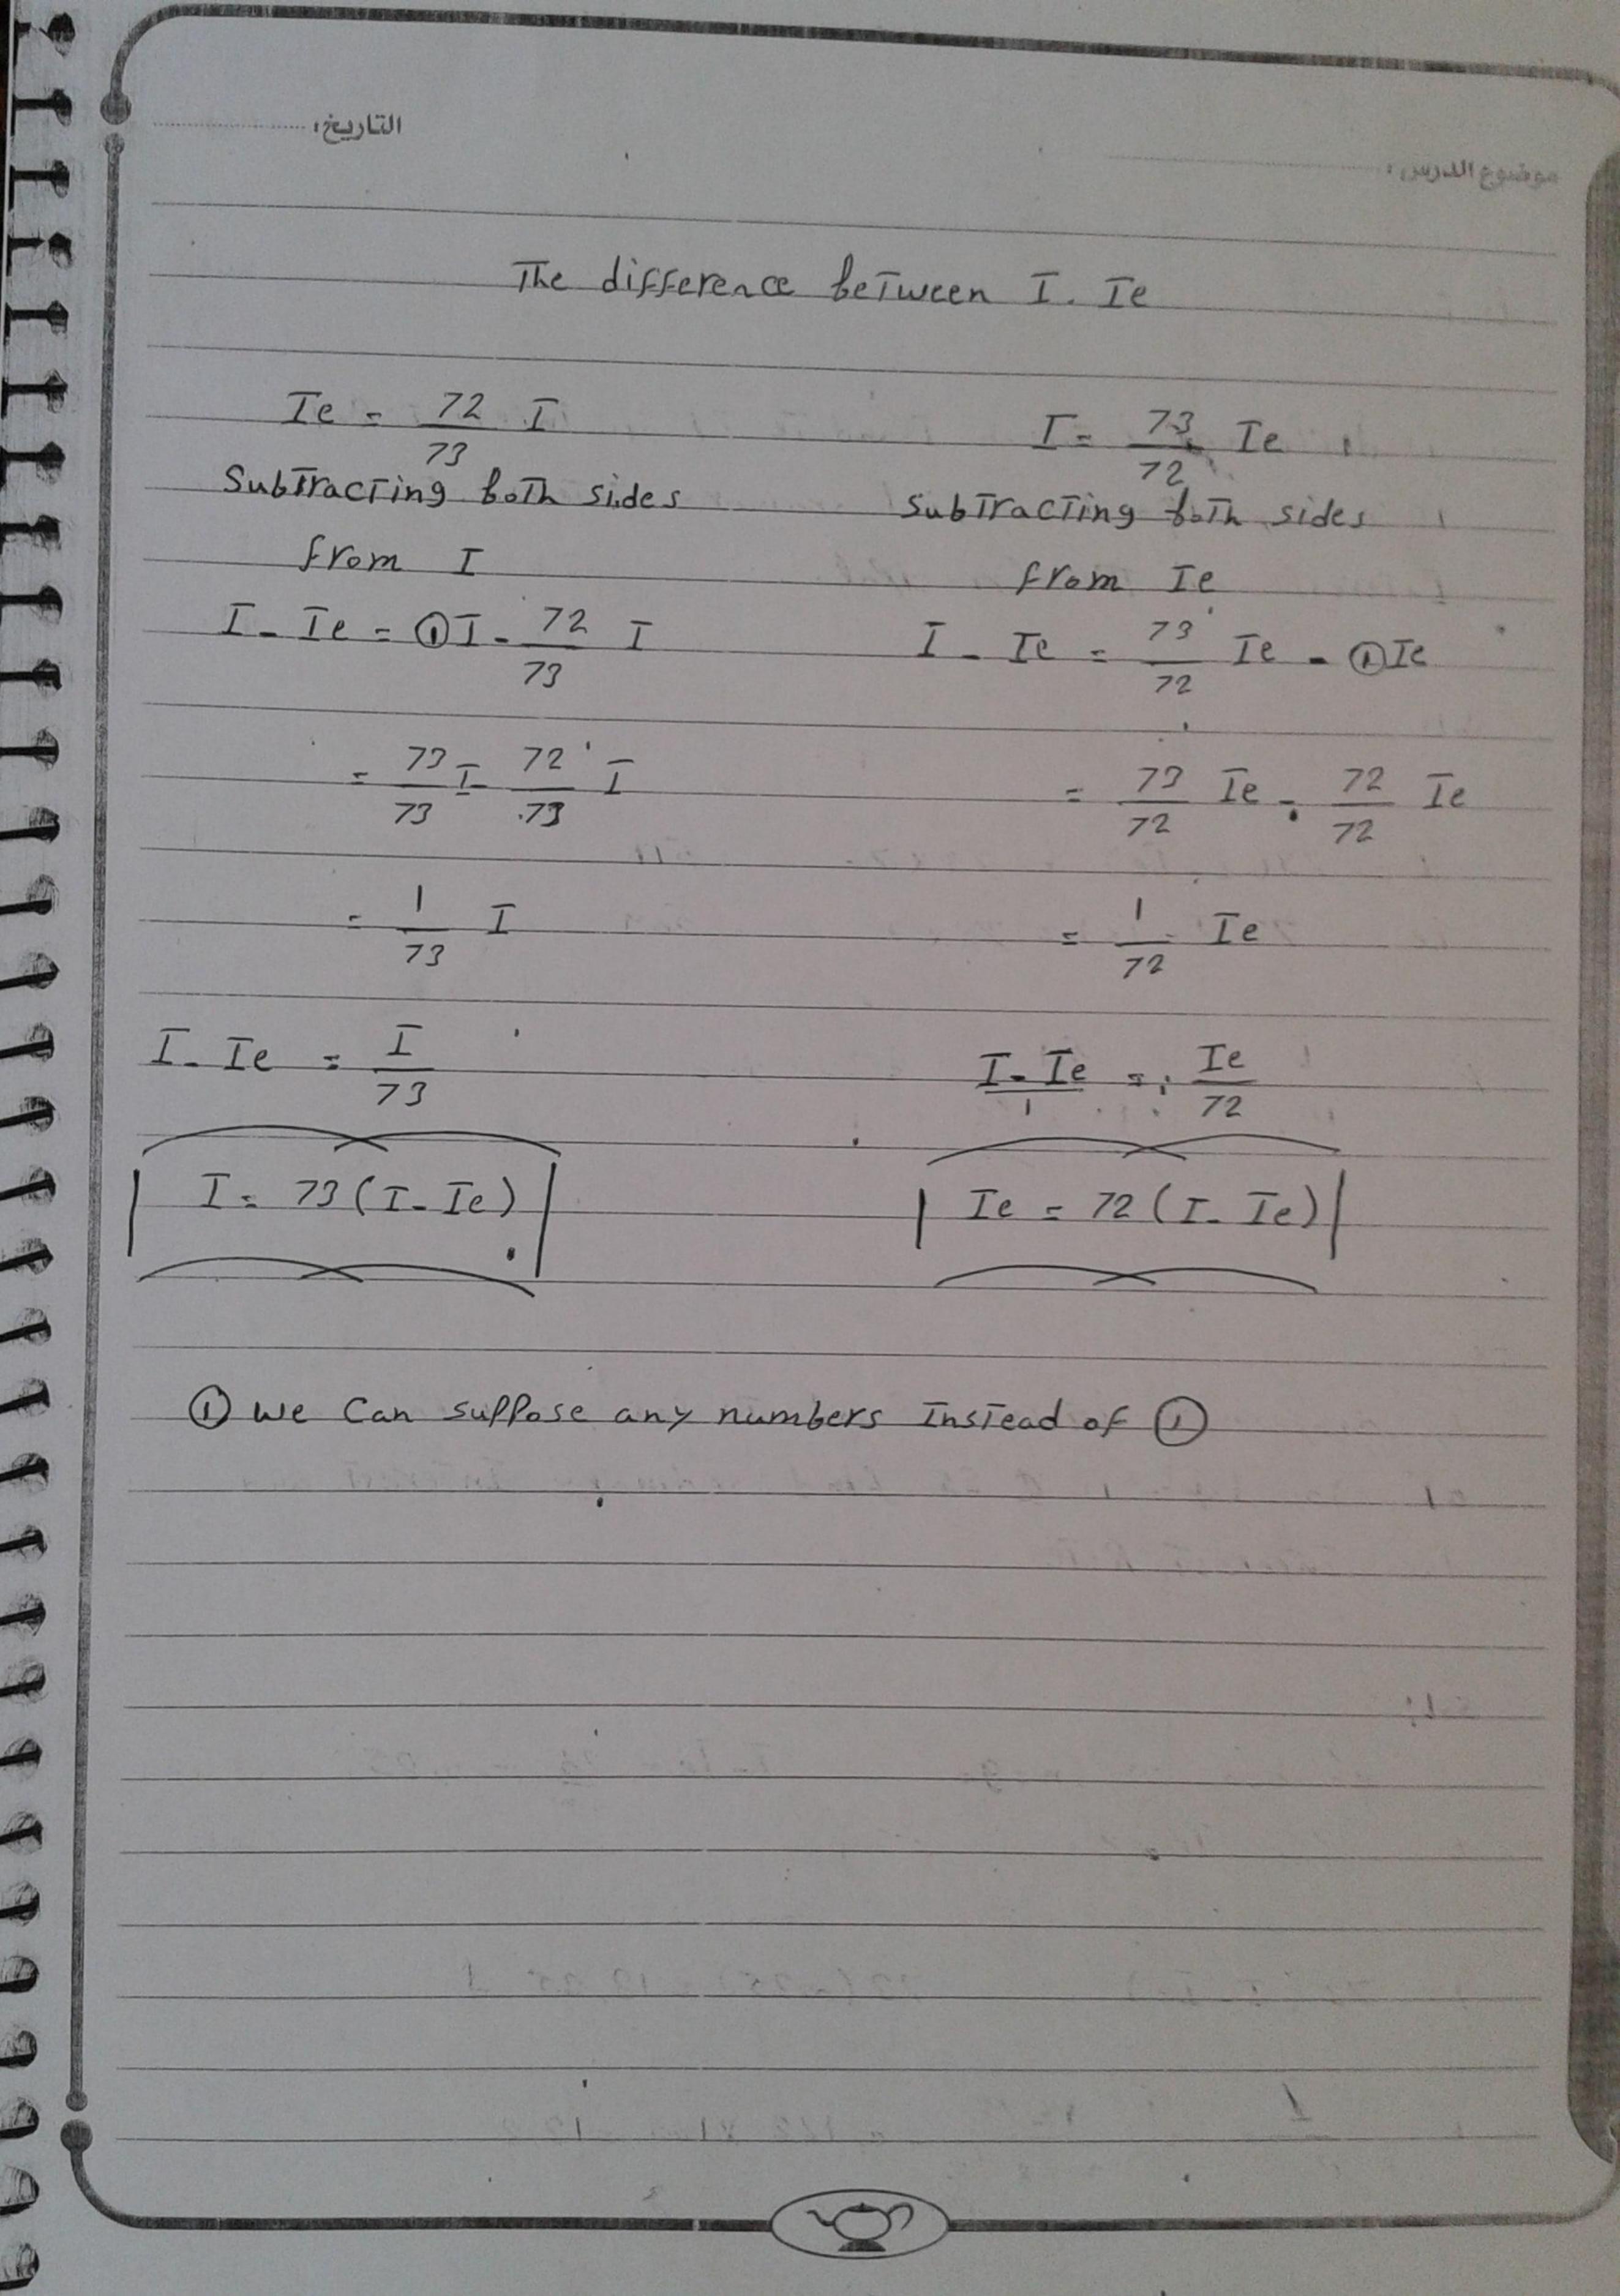 التاريخ:
موضوع الدرس:
The difference between I - Ie
Ie = 72/73 I
Subtracting both sides
from I
I - Ie = ①I - 72/73 I
= 73/73 I - 72/73 I
= 1/73 I
I - Ie = I/73
I = 73(I - Ie)
I = 73/72 Ie
Subtracting both sides
from Ie
I - Ie = 73/72 Ie - ①Ie
= 73/72 Ie - 72/72 Ie
= 1/72 Ie
I - Ie/1 = Ie/72
Ie = 72(I - Ie)
① we can suppose any numbers instead of ①